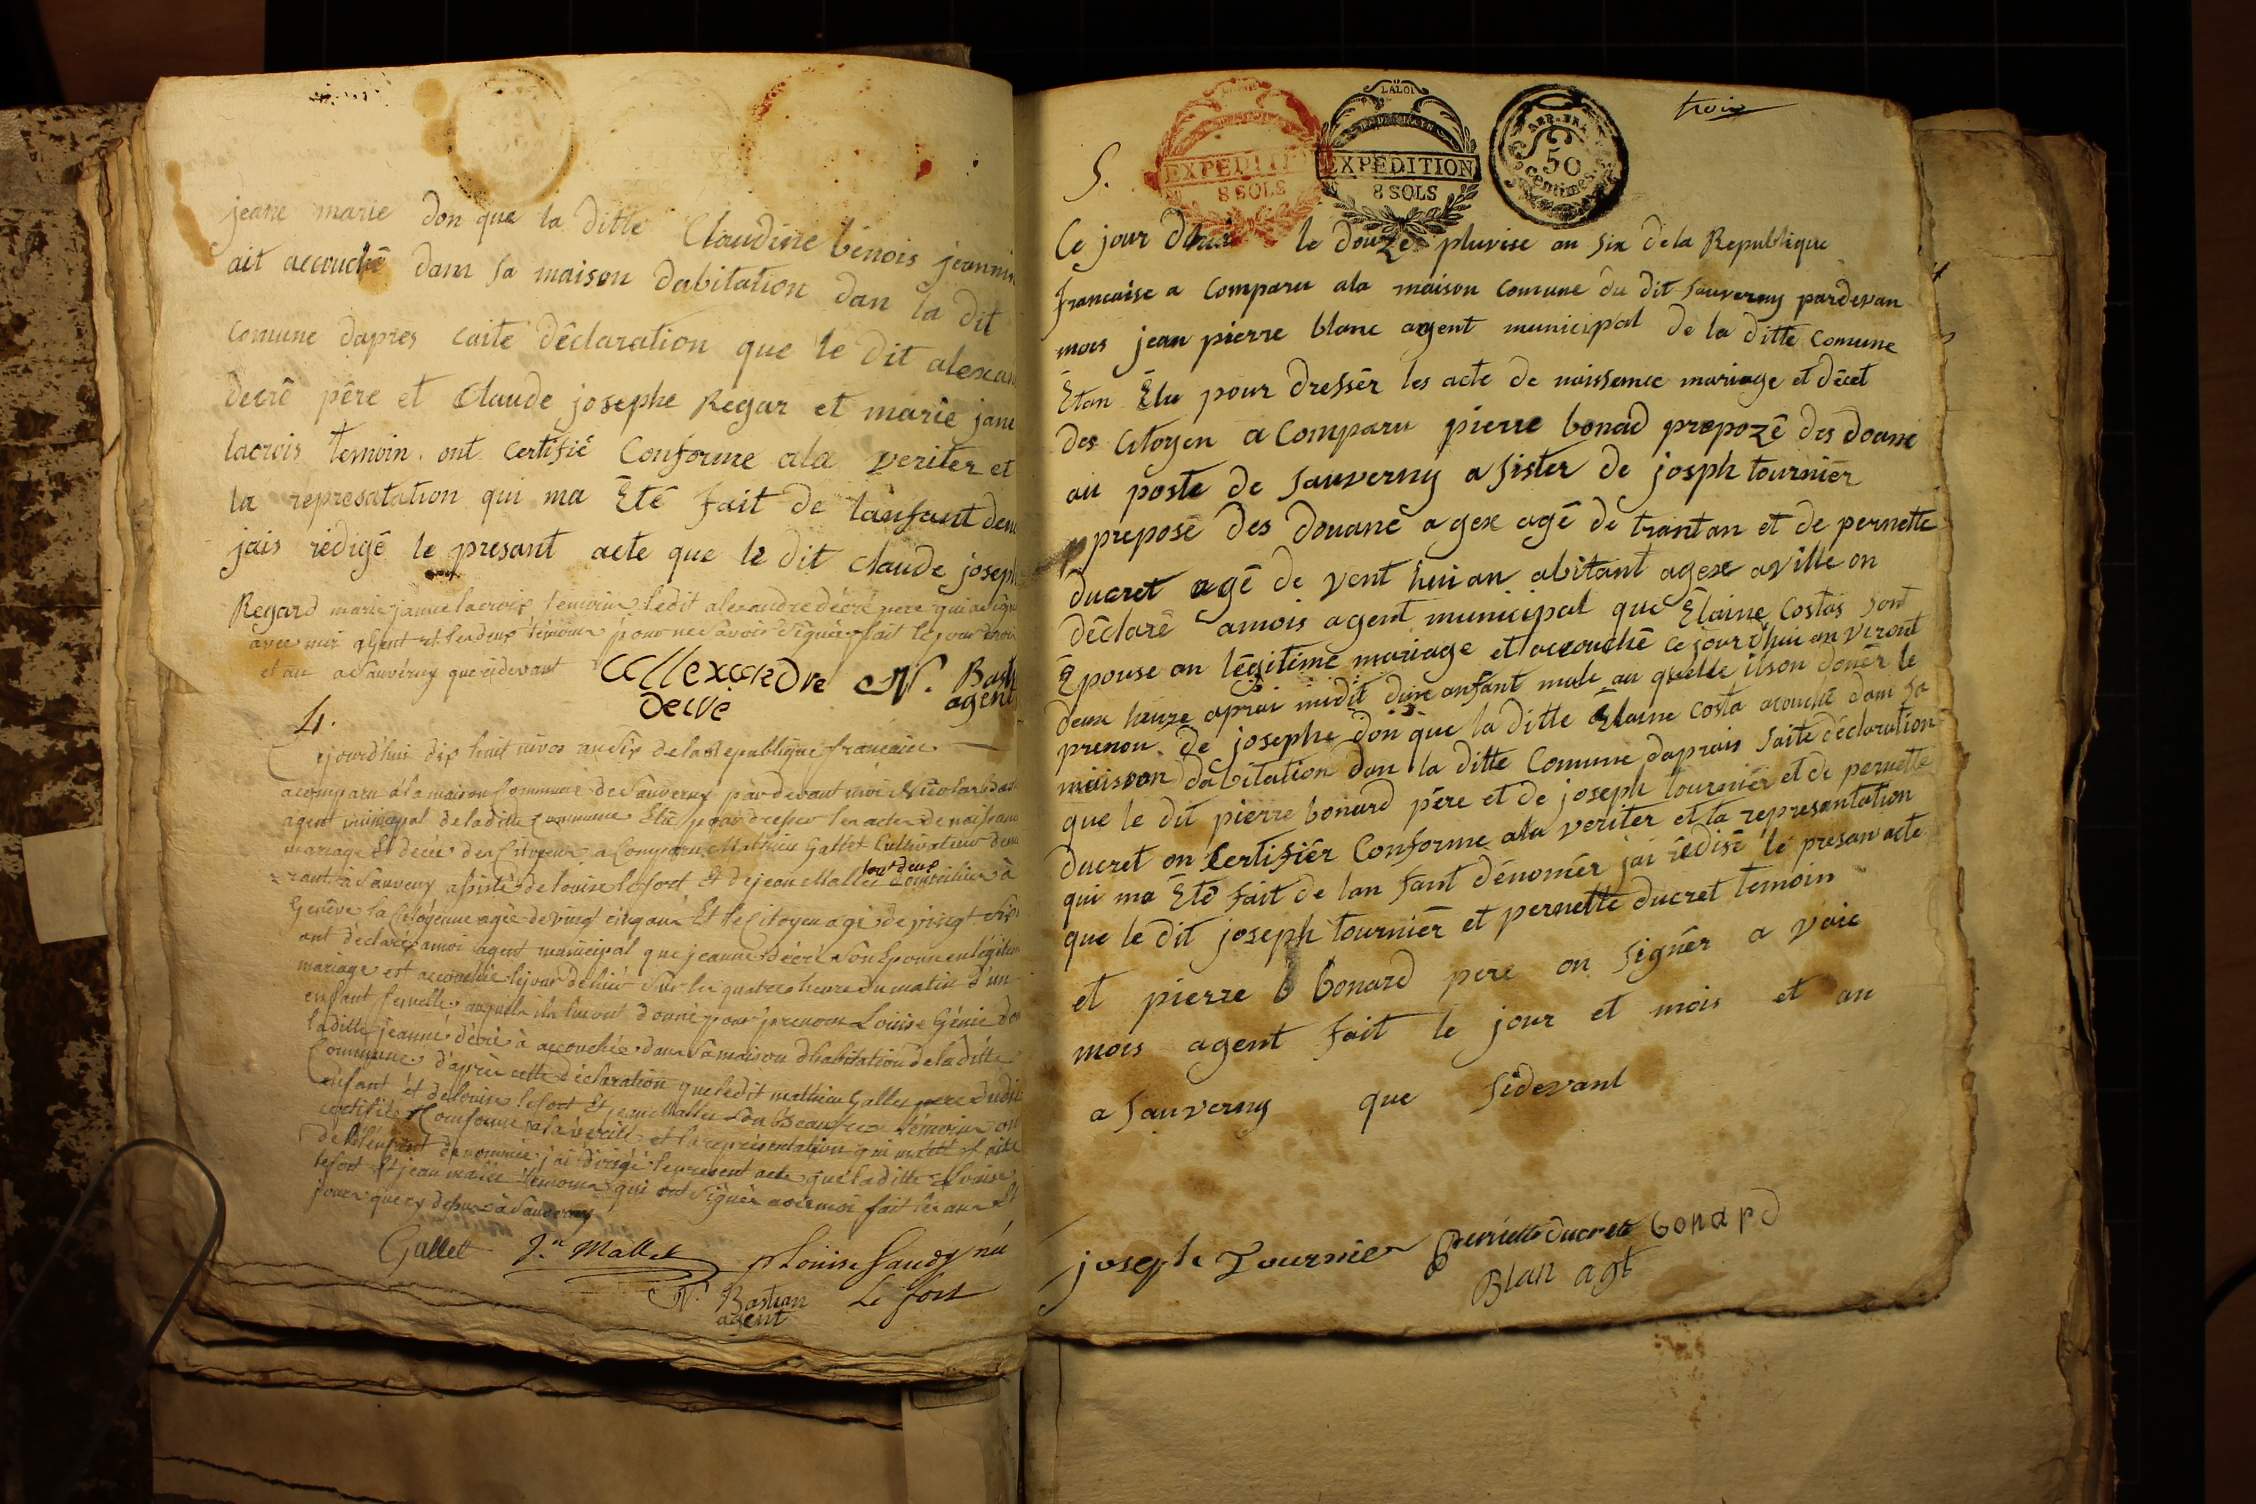 jeane marie don que la ditte Claudine benois jeannin
ait accouchê dans sa maison dabitation dan la dit
Comune dapres caite dêclaration que le dit alexan
decrê pêre et Claude josephe Regar et marie jane
lacrois temoin ont certifié Conforme ala veriter et
la represatation qui ma Êtê fait de lanfant deno
jais rêdigê le presant acte que le dit claude joseph
Regard marie janne lacroix témoin ledit alexandre décré pere qui a signé
avec moi agent et les deux témoin pour ne savoir signér fait le jour mois
et an a Sauverny que cydevant
allexandre
decré
N. Basti
agent
4.
Cejourd'huis dix huit nivos an Six de la Republique francaise
acomparu a la maison Commune de Sauverny par devant moi Nicolas Bas
agent municipal de la ditte Commune Elû pour dresser les actes de naissance
mariage et décé des Citoyens a Comparu Mathieu Gallet Cultivateur demeu
tout deux
rant à Sauverny assisté de louise lefort et de jean Mallet domicilié à
Genêve la Citoyenne agée de vingt cinq ans Et le Citoyen agé de vingt Six
ont déclaré amoi agent municipal que jeanne décré Son Epouse en légitime
mariage est accouchée le jour de hier Sur les quatres heure du matin d'un
enfant femelle auquels ils lui ont donné pour prenom Louise Génie don
laditte jeanne décré à accouchée dans Sa maison d'habitation de la ditte
Commune d'après cette déclaration que le dit mathieu Gallet pere dudit
enfant et de louise lefort Et jean Mallet témoins on
certifiée Conforme a la verité et la représentation qui ma été faite
de l'enfant denommée j'ai dirigé le present acte que la ditte Louise
lefort Et jean malet témoins qui ont Signér avec moi fait les an et
jour que cy dessus à Sauverny
Gallet Jn Mallet Louise Gaudy née
Le fort
N. Bastian
agent
trois
LALOI
EXPEDITION
8 SOLS
EXPEDITION
8 SOLS
50
centimes
5.
Ce jour dhui le douze pluvise an six de la Republique
francaise a Comparu ala maison Comune du dit Sauverny pardevan
mois jean pierre blanc agent municipal de la ditte Comune
Êtan Êlu pour dressêr les acte de naissance mariage et dêcet
des Citoyen a Comparu pierre bonad prepozê des doane
au poste de Sauverny a Sister de josph tourniêr
preposê des douanê a gex agê de trantan et de pernette
ducret agê de vent huit an abitant agex aville on
dêclarê amois agent municipal que Êlaine Costas Sont
Êpouse an lêgitime mariage et accouchê ce jourd'hui anviront
deux heure aprai midit dun anfant male au quelle ilson donêr le
prenon de josephe don que la ditte Êlaine Costa acouchê dans Sa
maison dabitation dan la ditte Comune daprais Saite dêclaration
que le dit pierre bonard pêre et de joseph tourniêr et de pernette
ducret on Certifiêr Conforme ala veriter et la representation
qui ma Êtê fait de lan fant dênomêr jai rêdisê le presan acte
que le dit joseph tourniêr et pernette ducret temoin
et pierre bonard pere on Signêr a vaic
mois agent fait le jour et mois et an
a Sauverny que Sidevant
joseph Tournier pernette ducrete bonard
Blan agt